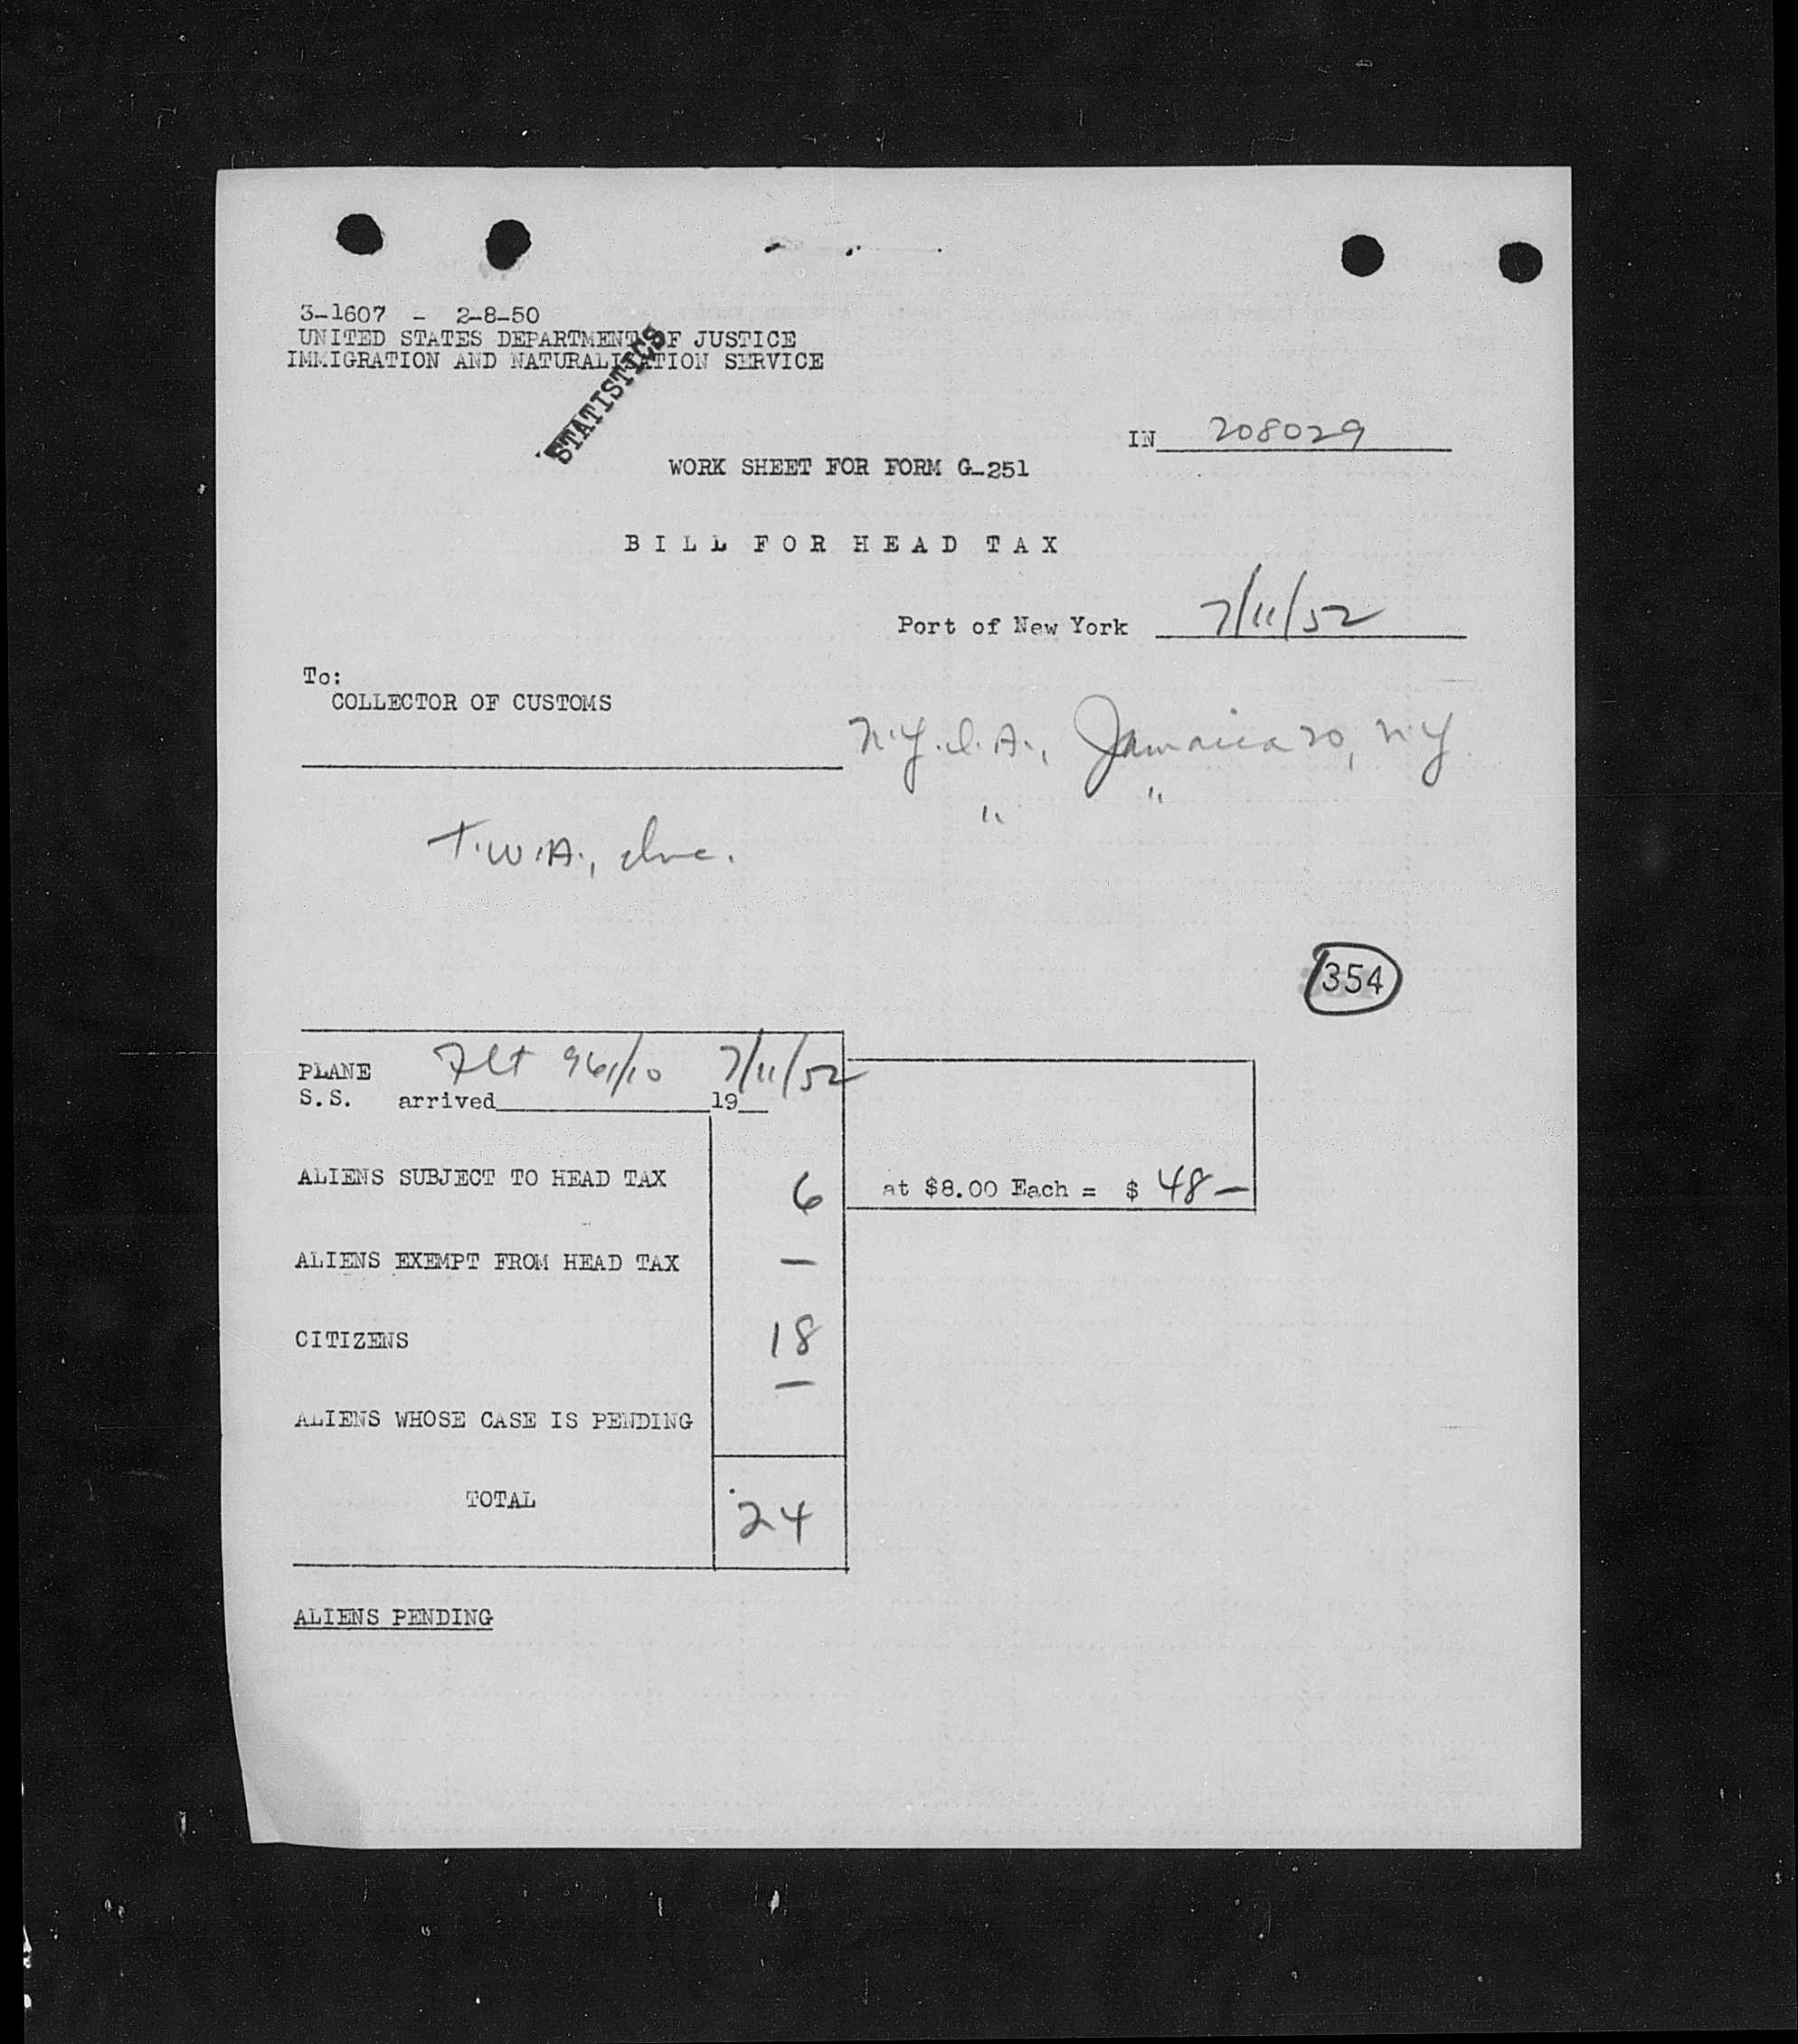 3-1607 - 2-8-50
UNITED STATES DEPARTMENT OF JUSTICE
IMMIGRATION AND NATURALIZATION SERVICE
STATISTICS
IN 208029
WORK SHEET FOR FORM G-251
BILL FOR HEAD TAX
Port of New York 7/11/52
To:
COLLECTOR OF CUSTOMS
N.Y.I.A., Jamaica 20, N.Y.
" "
T.W.A., Inc.
354
PLANE Flt 961/10 7/11/52
S.S. arrived 19
ALIENS SUBJECT TO HEAD TAX 6 at $8.00 Each = $ 48 —
ALIENS EXEMPT FROM HEAD TAX —
CITIZENS 18
—
ALIENS WHOSE CASE IS PENDING
TOTAL 24
ALIENS PENDING